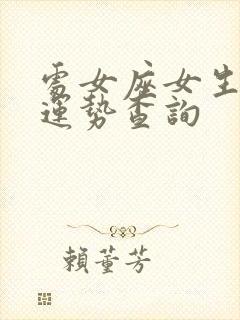 處女座女生
運勢查詢
賴董芳